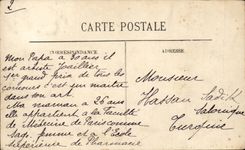 2
CARTE POSTALE
CORRESPONDANCE
ADRESSE
Mon Papa a 30 ans il
est artiste Joaillier
1er grand prix de tous les
concours c'est un maître
dans son art.
Ma maman a 26 ans
elle appartient à la Faculté
de Médecine de Paris comme
Sage femme et à l'Ecole
supérieure de Pharmacie
Monsieur
Hassan Sadik
Salonique
Turquie